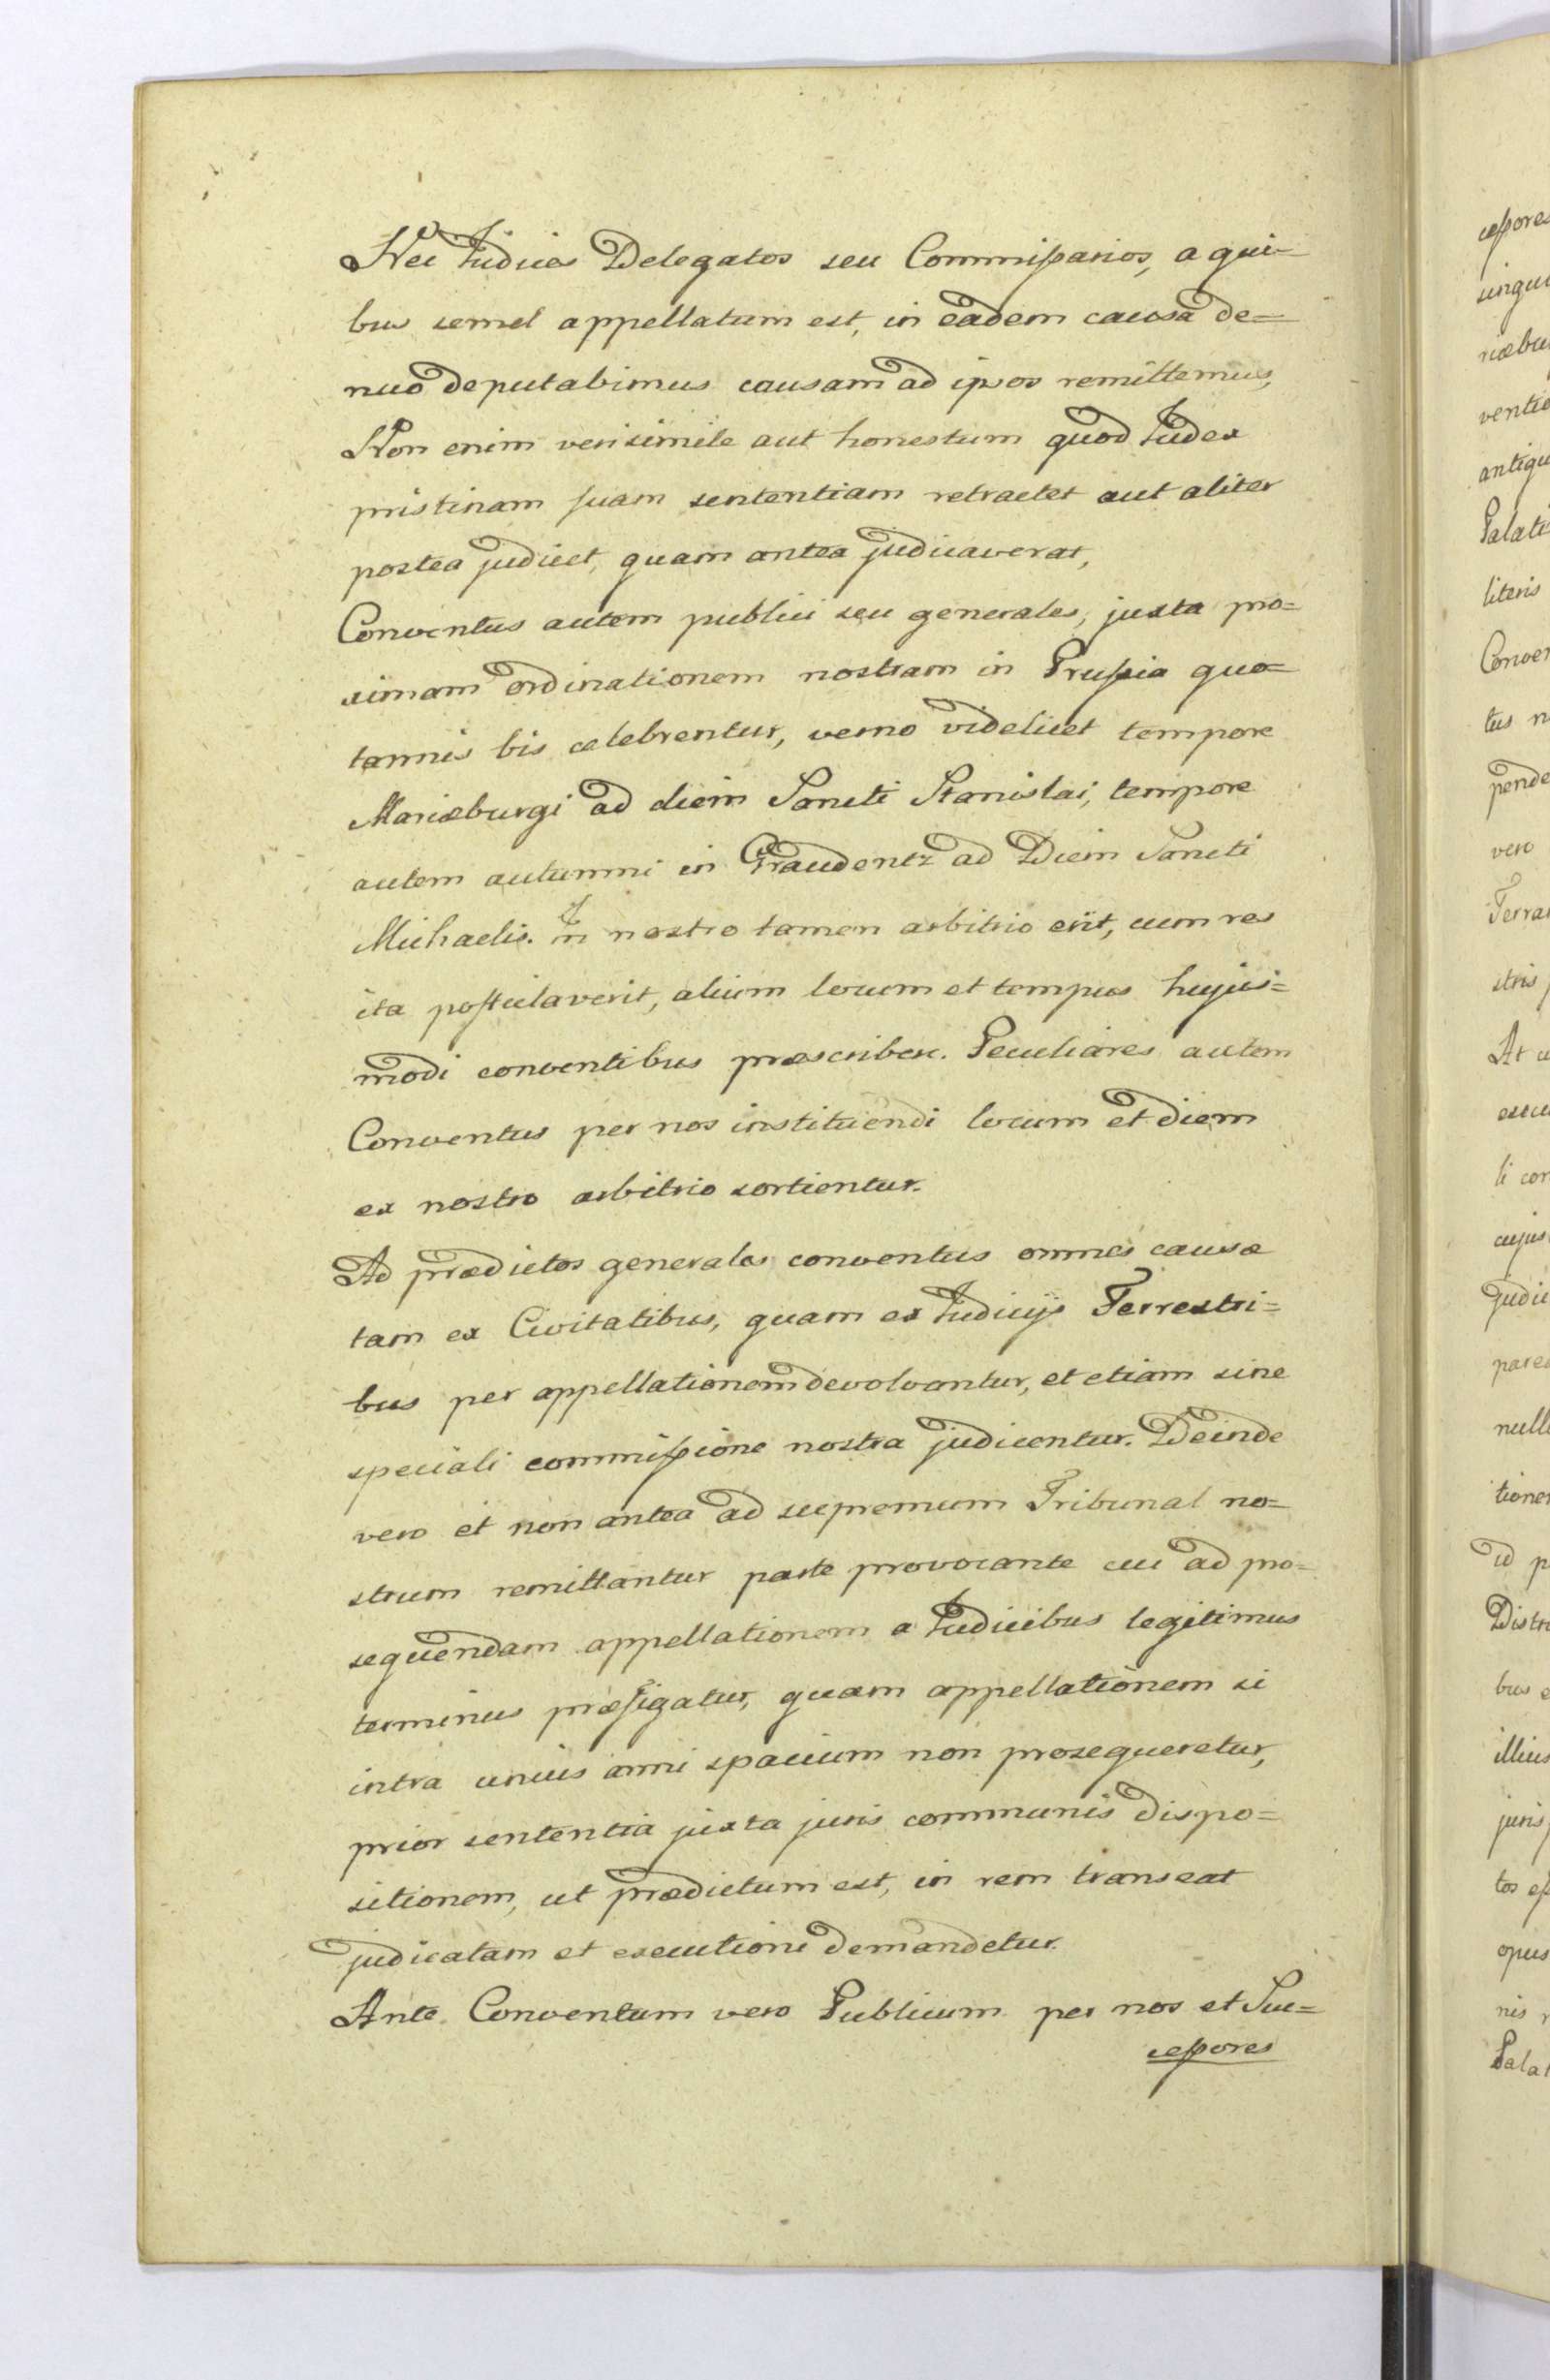 Nec Judices Delegatos seu Commissarios, a qui-
bus semel appellatum est, in eadem causa de=
nuo deputabimus causam ad ipsos remittemus,
Non enim verisimile aut honestum quod Judex
pristinam suam sententiam retractet aut aliter
postea judicet, quam antea judicaverat,
Conventus autem publici seu generales, juxta pro=
ximam ordinationem nostram in Prussia quo=
tannis bis celebrentur, verno videlicet tempore
Mariæburgi ad diem Sancti Stanislai, tempore
autem autumni in Graudentz ad Diem Sancti
Michaelis. In nostro tamen arbitrio erit, cum res
ita postulaverit, alium locum et tempus hujus=
modi conventibus præscribere. Peculiares autem
Conventus per nos instituendi locum et diem
ex nostro arbitrio sortientur.
Ad prædictos generales conventus omnes causæ
tam ex Civitatibus, quam ex Judicijs Terrestri=
bus per appellationem devolvantur, et etiam sine
speciali commissione nostra judicentur. Deinde
vero et non antea ad supremum Tribunal no=
strum remittantur parte provocante cui ad pro=
sequendam appellationem a Judicibus legitimus
terminus præfigatur, quam appellationem si
intra unius anni spacium non prosequeretur,
prior sententia juxta juris communis dispo=
sitionem, ut prædictum est, in rem transeat
judicatam et executioni demandetur.
Ante Conventum vero Publicum per nos et Suc=
cessores
cessores
singu
riæbu
ventio
antiqu
Palati
literis
Conven
tus n
pende
vero
Terrar
stris
At u
execu
li con
cujus
Judic
pare
null
tiones
id p
Distri
bus e
illius
juris
tos ess
opus
nis
Palat